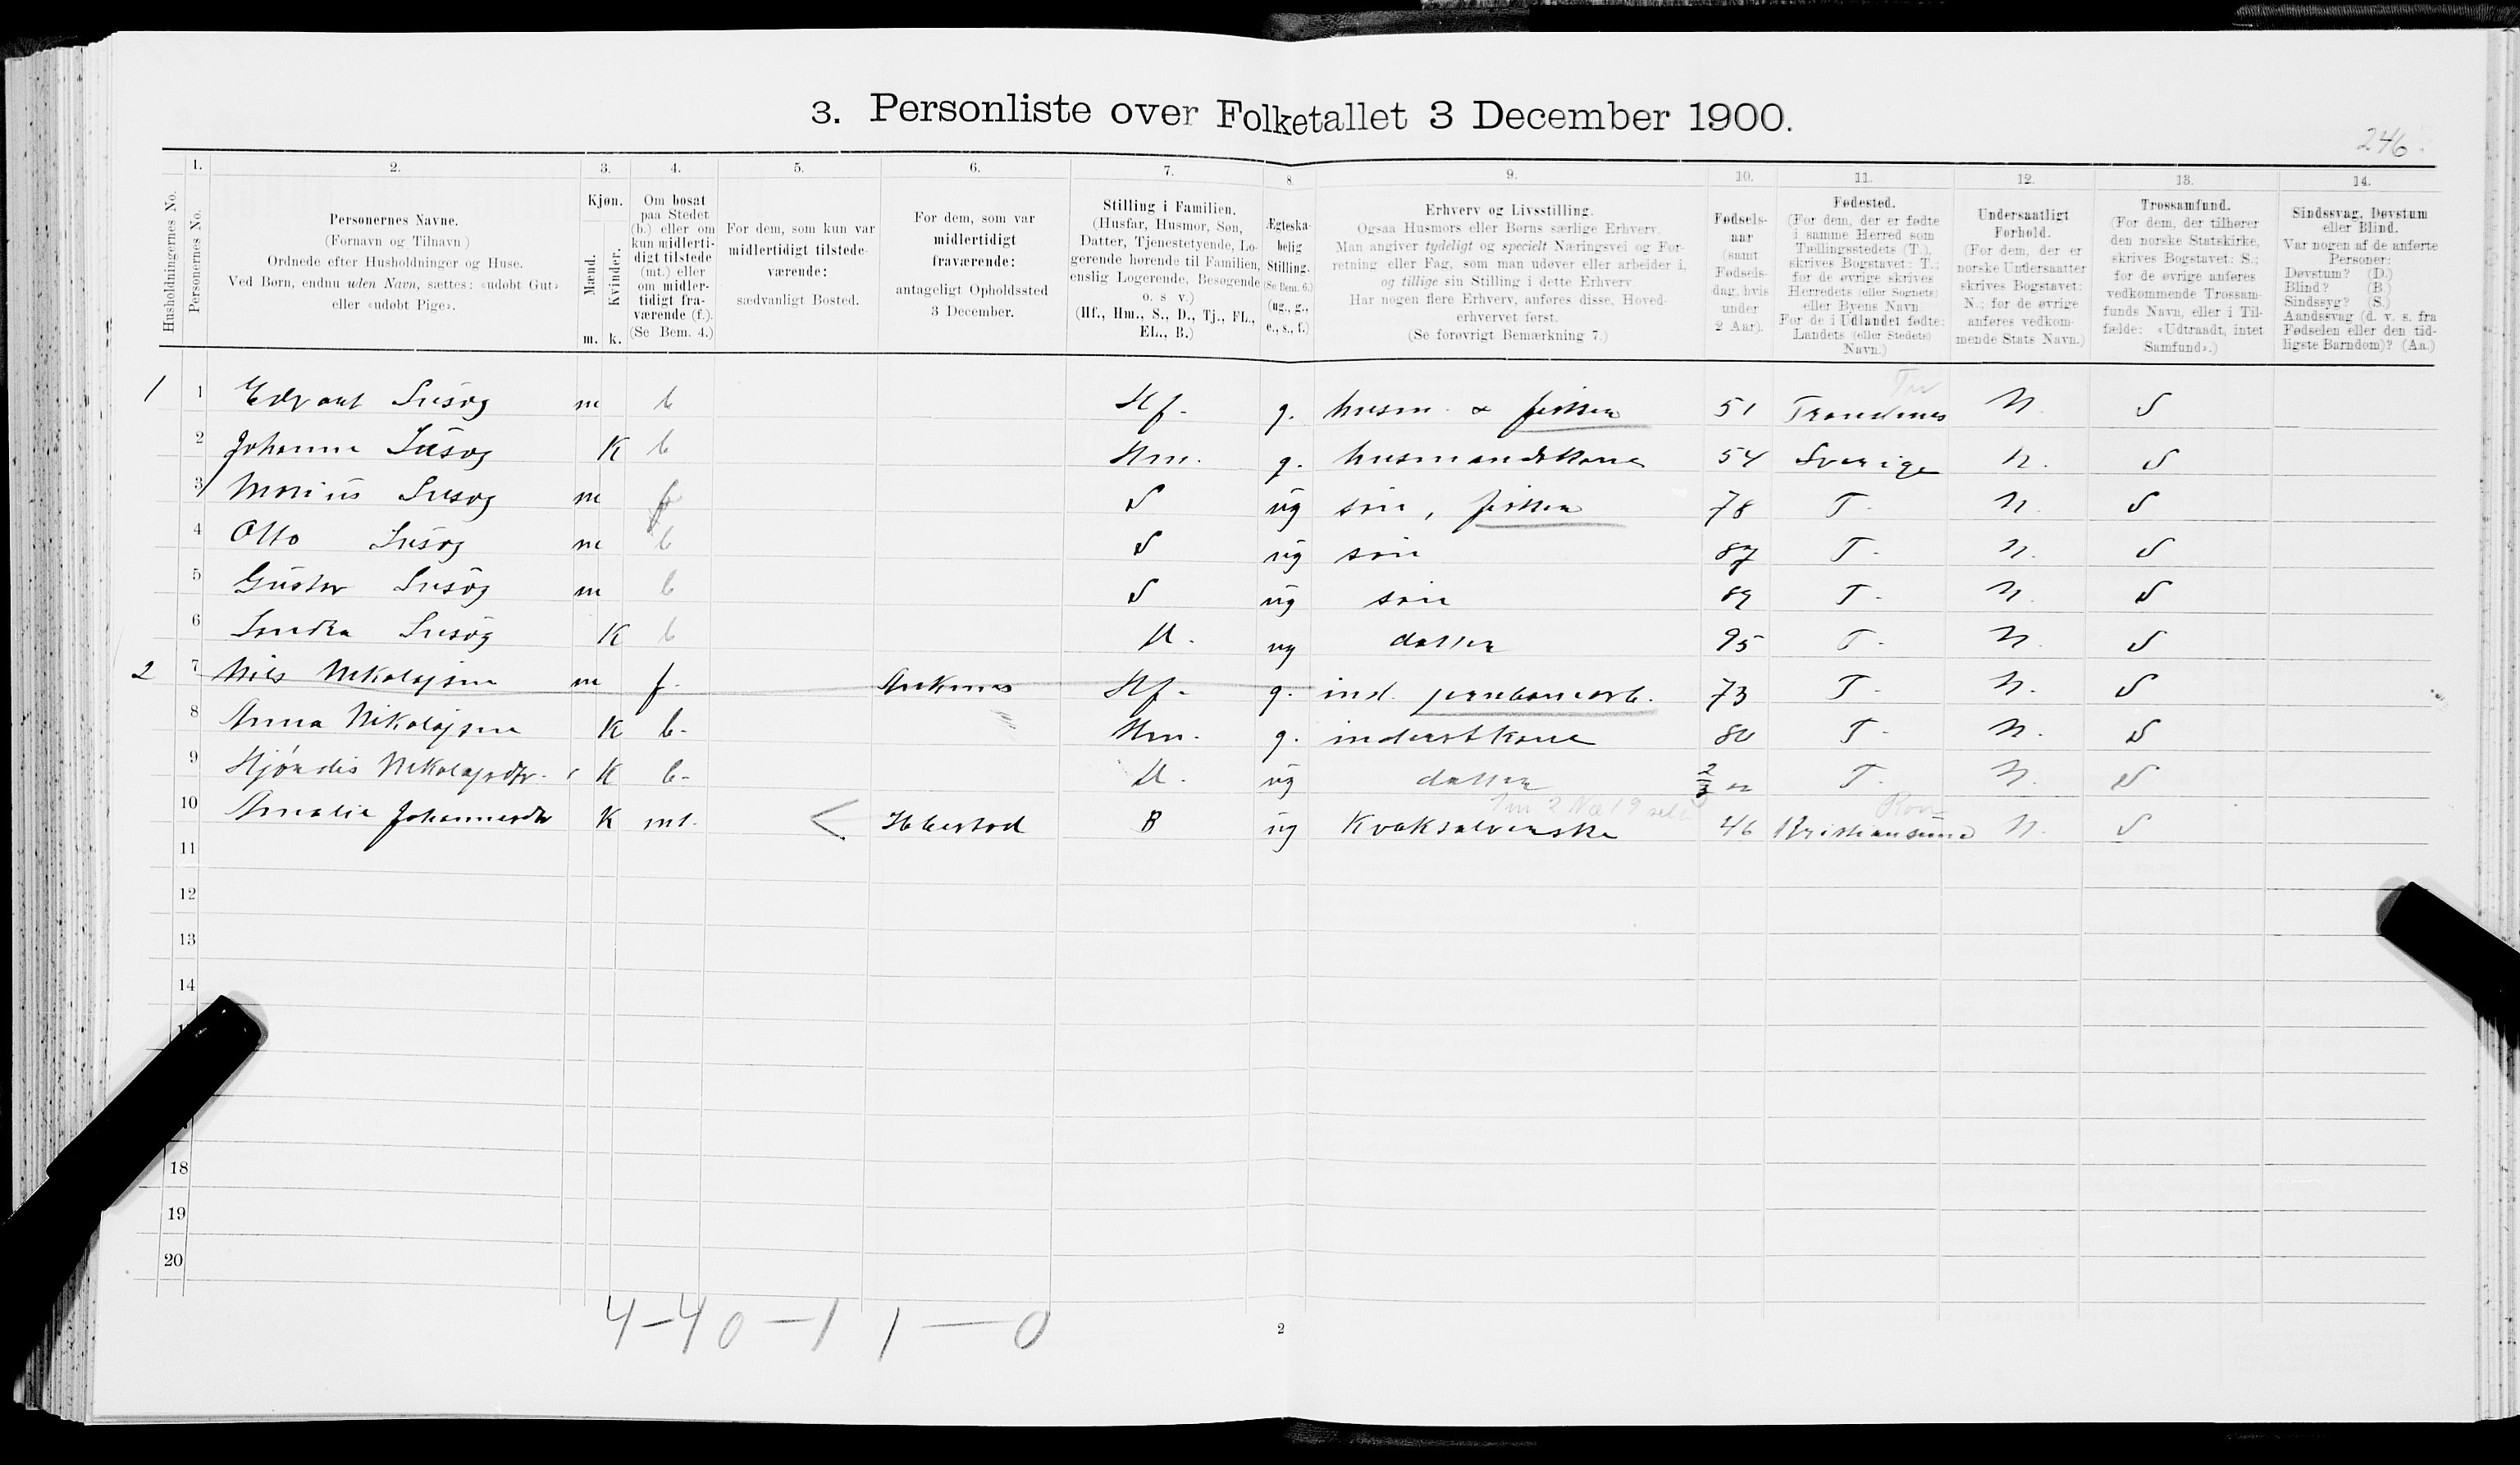 3. Personliste over Folketallet 3 December 1900.
246.
1. 2. 3. 4. 5. 6. 7. 8. 9. 10. 11. 12. 13. 14.
Husholdningernes No.
Personernes No.
Personernes Navne.
(Fornavn og Tilnavn)
Ordnede efter Husholdninger og Huse.
Ved Børn, endnu uden Navn, sættes: «udøbt Gut»
eller «udøbt Pige».
Kjøn.
Mænd.
Kvinder.
m. k.
Om bosat
paa Stedet
(b.) eller om
kun midlerti-
digt tilstede
(mt.) eller
om midler-
tidigt fra-
værende (f.).
(Se Bem. 4.)
For dem, som kun var
midlertidigt tilstede-
værende:
sædvanligt Bosted.
For dem, som var
midlertidigt
fraværende:
antageligt Opholdssted
3 December.
Stilling i Familien.
(Husfar, Husmor, Søn,
Datter, Tjenestetyende, Lo-
gerende hørende til Familien,
enslig Logerende, Besøgende
o. s. v.)
(Hf., Hm., S., D., Tj., FL.,
EL., B.)
Ægteska-
belig
Stilling.
(Se Bem. 6.)
(ug., g.,
e., s., f.)
Erhverv og Livsstilling.
Ogsaa Husmors eller Børns særlige Erhverv.
Man angiver tydeligt og specielt Næringsvei og For-
retning eller Fag, som man udøver eller arbeider i,
og tillige sin Stilling i dette Erhverv.
Har nogen flere Erhverv, anføres disse, Hoved-
erhvervet først.
(Se forøvrigt Bemærkning 7.)
Fødsels-
aar
(samt
Fødsels-
dag, hvis
under
2 Aar).
Fødested.
(For dem, der er fødte
i samme Herred som
Tællingsstedets (T.),
skrives Bogstavet: T.;
for de øvrige skrives
Herredets (eller Sognets)
eller Byens Navn.
For de i Udlandet fødte:
Landets (eller Stedets)
Navn.)
Undersaatligt
Forhold.
(For dem, der er
norske Undersaatter
skrives Bogstavet:
N.; for de øvrige
anføres vedkom-
mende Stats Navn.)
Trossamfund.
(For dem, der tilhører
den norske Statskirke,
skrives Bogstavet: S.;
for de øvrige anføres
vedkommende Trossam-
funds Navn, eller i Til-
fælde: «Udtraadt, intet
Samfund».)
Sindssvag, Døvstum
eller Blind.
Var nogen af de anførte
Personer:
Døvstum? (D.)
Blind? (B.)
Sindssyg? (S.)
Aandssvag (d. v. s. fra
Fødselen eller den tid-
ligste Barndom)? (Aa.)
1 1 m b Hf. g. husm. & fisker 51 Trondenes N. S
2 Johanna K b Hm. g. husmandskone 54 Sverige N. S
3 Marius m f S ug søn, fisker 78 T. N. S
4 Otto m b S ug søn 87 T. N. S
5 Gustav m b S ug søn T. N. S
6 K b D. ug datter 95 T. N. S
2 7 Nils Nikolajsen m f. Ankenes Hf. g. ind. jernbanearb. 73 T. N. S
8 Anna Nikolajsen K b. Hm. g. inderstkone T. N. S
9 Hjørdis Nikolajsdtr. K b. D. ug datter T. N. S
10 Amalie Johannesdtr K mt. < Ibbestad B ug Kvaksalverske 46 Kristiansund N. S
11
12
13
14
18
19
20
4-4 0-1 1-0
2